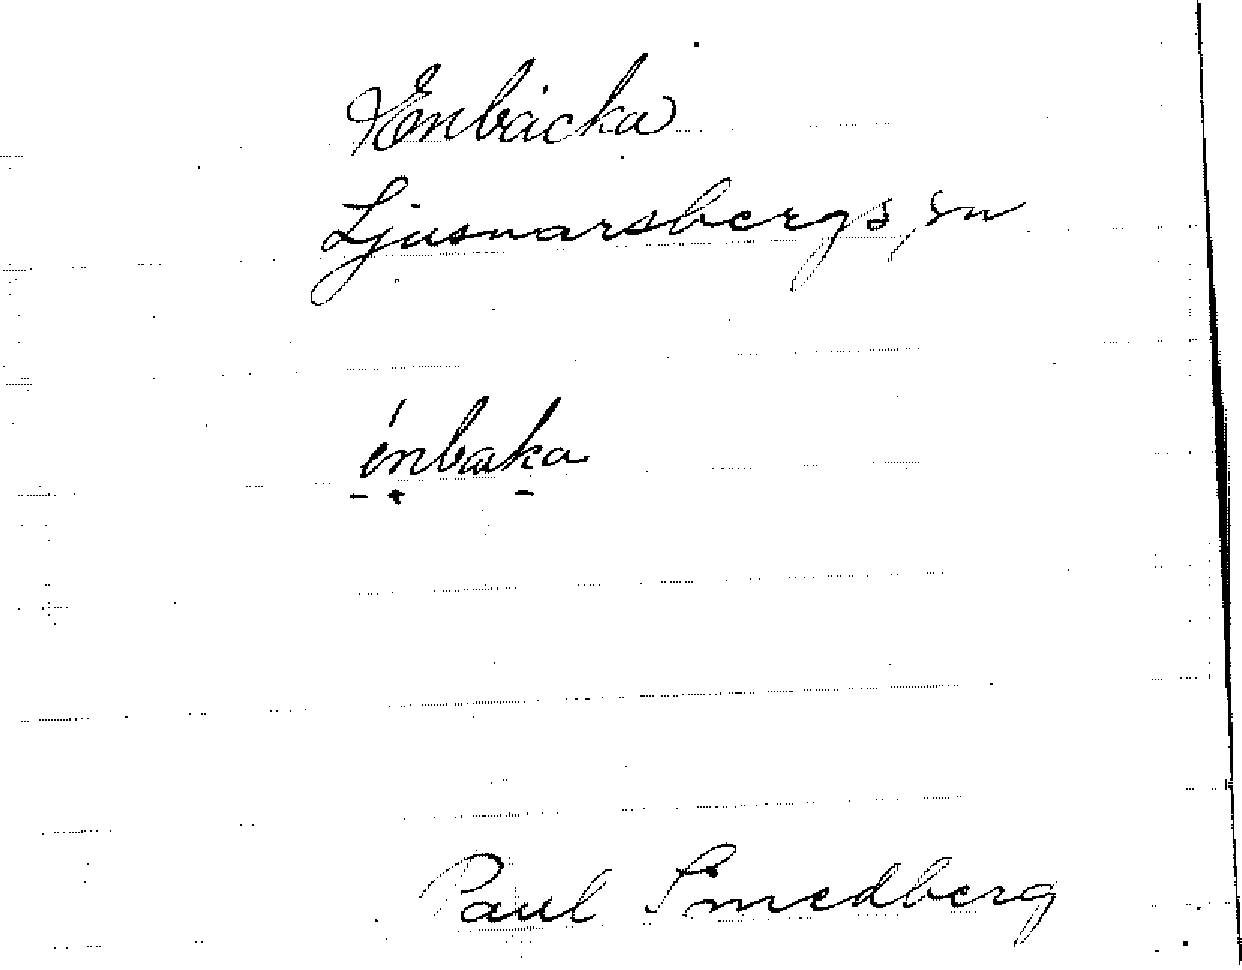 Enbäcka
Ljusnarsbergs sn
énbaka
Paul Smedberg